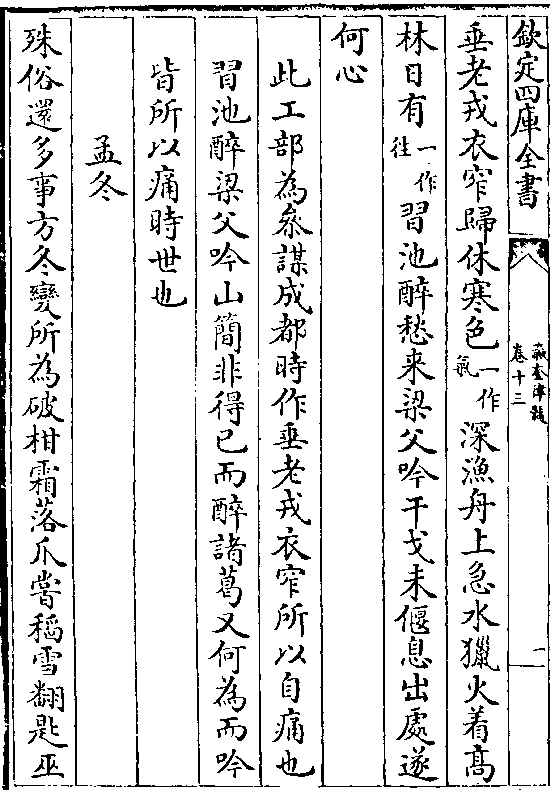 欽定四庫全書
瀛奎律髓
卷十三
一
垂老戎衣窄歸休寒色一作氣深漁舟上急水獵火着髙
林日有一作往習池醉愁来梁父吟干戈未偃息出處遂
何心
此工部為叅謀成都時作垂老戎衣窄所以自痛也
習池醉梁父吟山簡非得已而醉諸葛又何為而吟
皆所以痛時世也
孟冬
殊俗還多事方冬變所為破柑霜落爪嘗稻雪翻匙巫